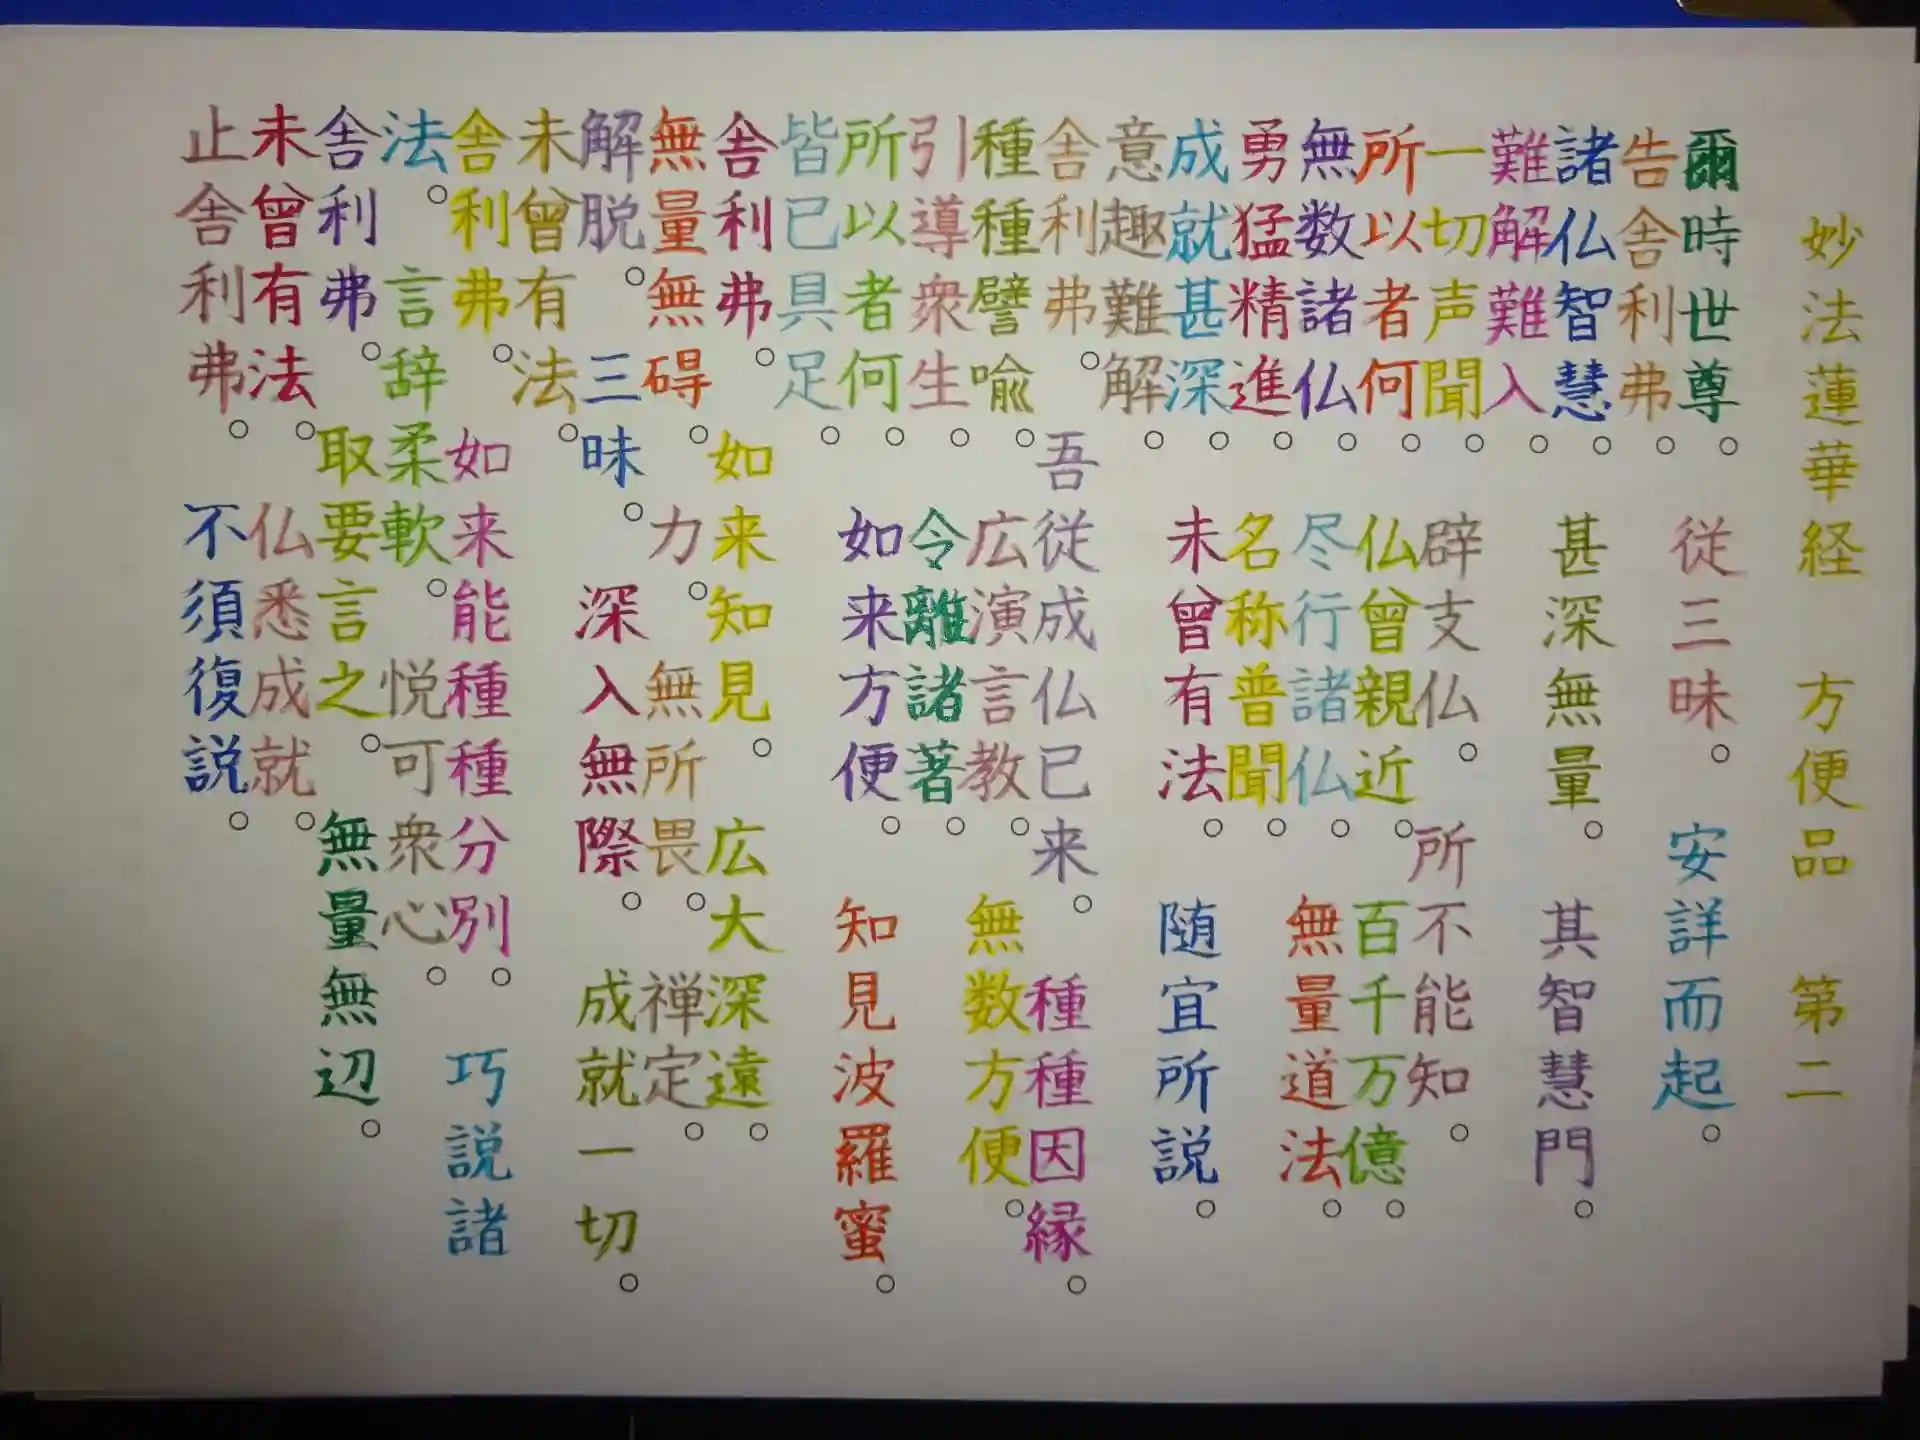 妙法蓮華経 方便品 第二
爾時世尊。従三昧。安詳而起。
告舎利弗。
諸仏智慧。甚深無量。其智慧門。
難解難入。
一切声聞。辟支仏。所不能知。
所以者何。仏曾親近。百千万億。
無数諸仏。尽行諸仏。無量道法。
勇猛精進。名称普聞。
成就甚深。未曾有法。随宜所説。
意趣難解。
舎利弗。吾従成仏已来。種種因縁。
種種譬喩。広演言教。無数方便。
引導衆生。令離諸著。
所以者何。如来方便。知見波羅蜜。
皆已具足。
舎利弗。如来知見。広大深遠。
無量無碍。力。無所畏。禅定。
解脱。三昧。深入無際。成就一切。
未曾有法。
舎利弗。如来能種種分別。巧説諸
法。言辞柔軟。悦可衆心。
舎利弗。取要言之。無量無辺。
未曾有法。仏悉成就。
止舎利弗。不須復説。